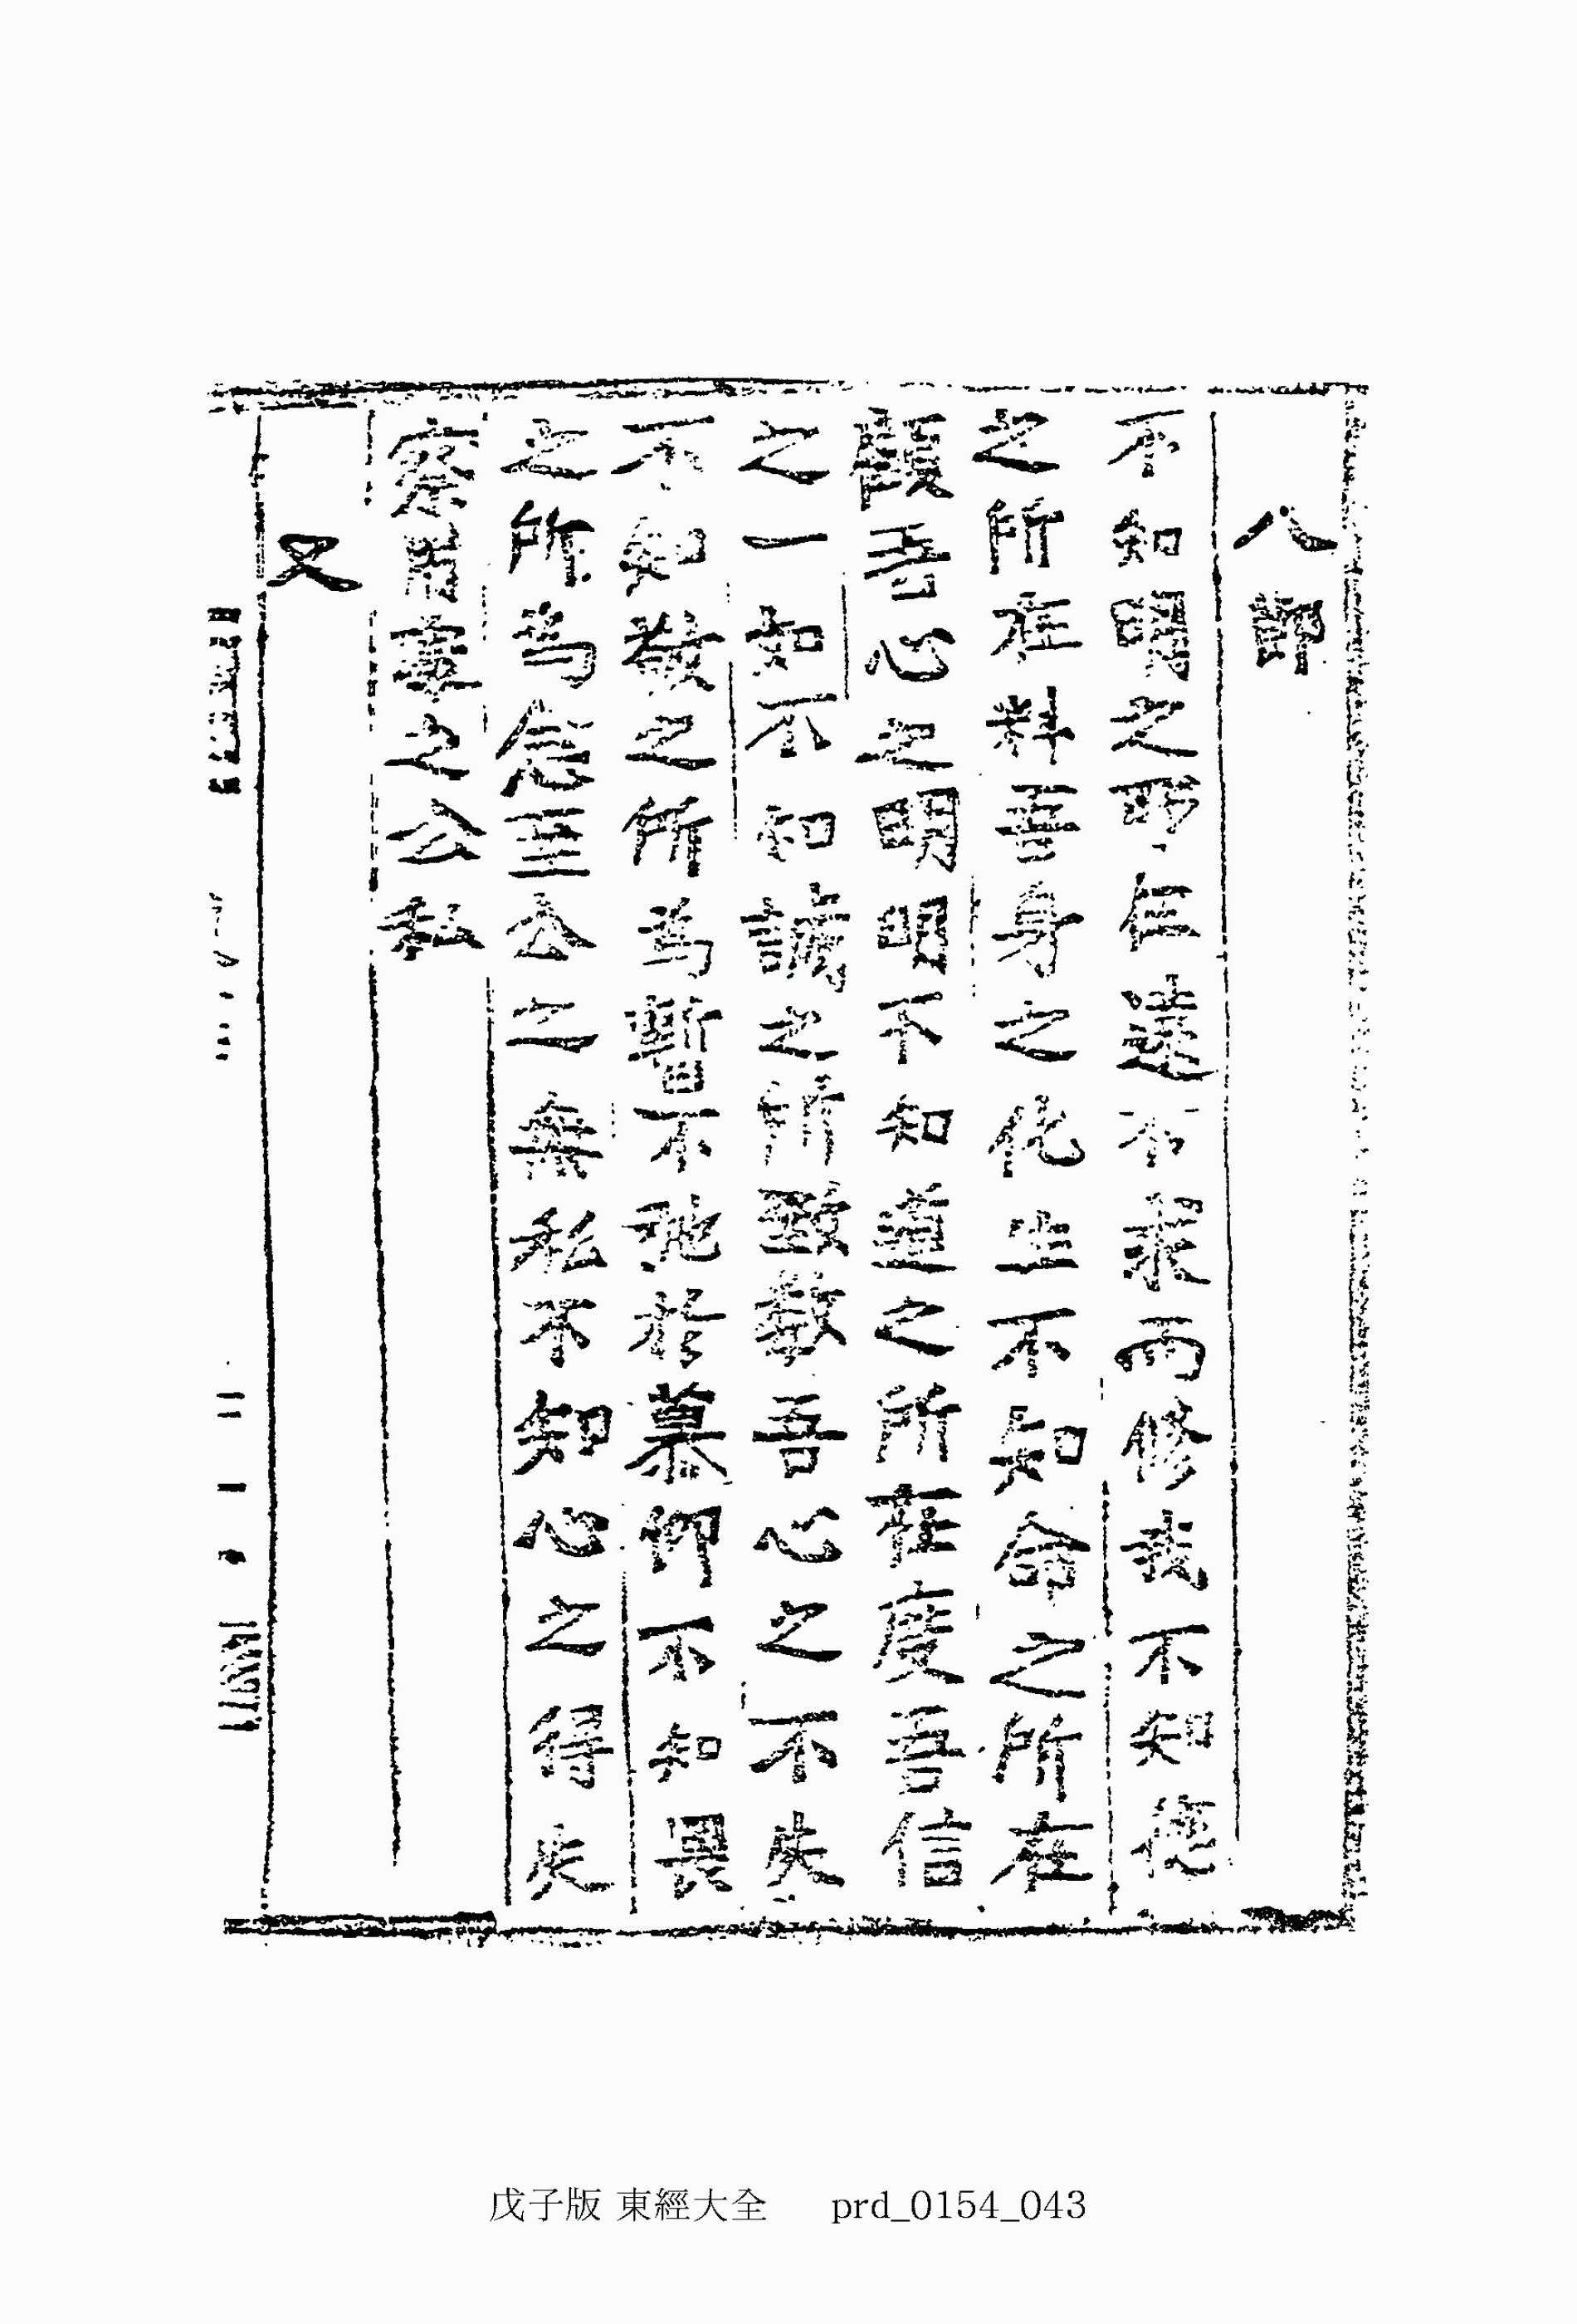 八節
不知明之所在遠不求而修我不知德
之所在料吾身之化生不知命之所在
顧吾心之明明不知道之所在度吾信
之一如不知誠之所致數吾心之不失
不知敬之所爲暫不弛於慕仰不知畏
之所爲念至公之無私不知心之得失
察用處之公私
又
戊子版 東經大全 prd_0154_043